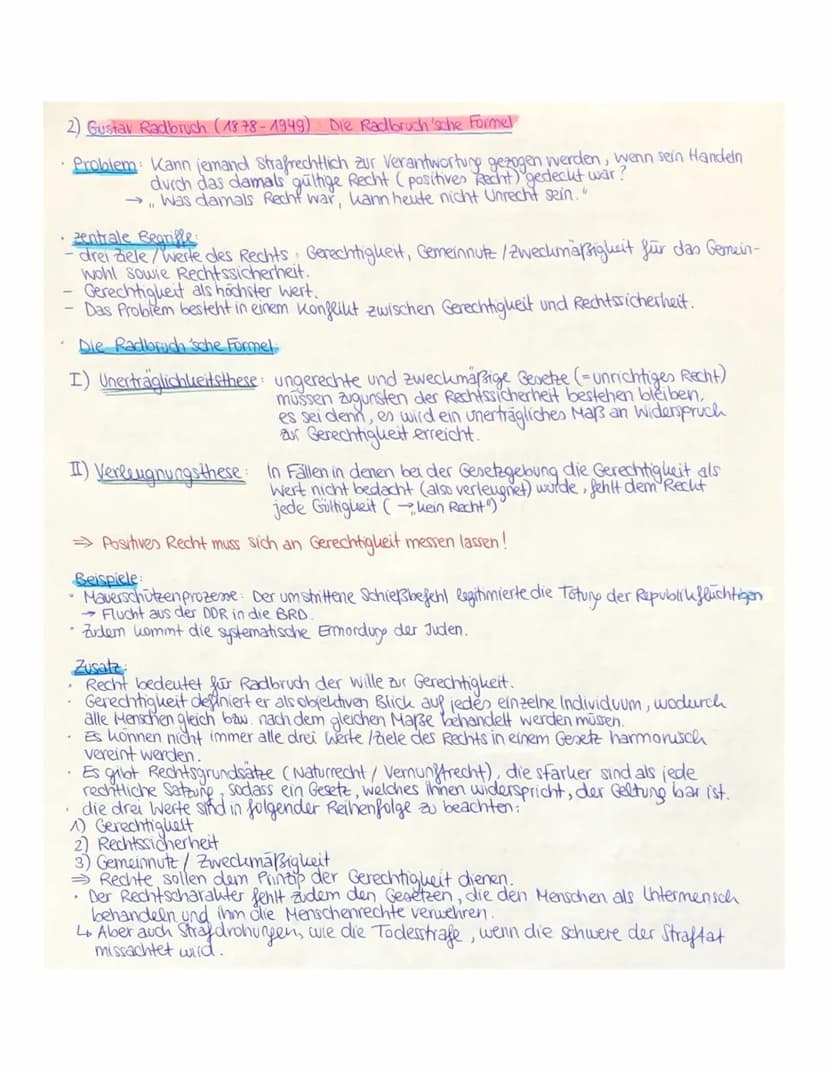 2) Gustav Radbruch (1878-1949) Die Radbruch'sche Formel
· Problem: Kann jemand strafrechtlich zur Verantwortung gezogen werden, wenn sein Handeln
durch das damals gültige Recht (positives Recht) gedeckt war?
→ „Was damals Recht war, kann heute nicht Unrecht sein."
· zentrale Begriffe:
- drei Ziele / Werte des Rechts: Gerechtigkeit, Gemeinnutz / Zweckmäßigkeit für das Gemein-
wohl sowie Rechtssicherheit.
- Gerechtigkeit als höchster Wert.
- Das Problem besteht in einem Konflikt zwischen Gerechtigkeit und Rechtssicherheit.
· Die Radbruch'sche Formel
I) Unerträglichkeitsthese: ungerechte und zweckmäßige Gesetze (=unrichtiges Recht)
müssen zugunsten der Rechtssicherheit bestehen bleiben,
es sei denn, es wird ein unerträgliches Maß an Widerspruch
zur Gerechtigkeit erreicht.
II) Verleugnungsthese: In Fällen in denen bei der Gesetzgebung die Gerechtigkeit als
Wert nicht bedacht (also verleugnet) wurde, fehlt dem Recht
jede Gültigkeit (→„kein Recht")
⇒ Positives Recht muss sich an Gerechtigkeit messen lassen!
Beispiele:
· Mauerschützenprozesse: Der umstrittene Schießbefehl legitimierte die Tötung der Republikflüchtigen
→ Flucht aus der DDR in die BRD.
· Zudem kommt die systematische Ermordung der Juden.
Zusatz:
· Recht bedeutet für Radbruch der Wille zur Gerechtigkeit.
· Gerechtigkeit definiert er als objektiven Blick auf jedes einzelne Individuum, wodurch
alle Menschen gleich bzw. nach dem gleichen Maße behandelt werden müssen.
· Es können nicht immer alle drei Werte / Ziele des Rechts in einem Gesetz harmonisch
vereint werden.
· Es gibt Rechtsgrundsätze (Naturrecht / Vernunftrecht), die stärker sind als jede
rechtliche Satzung, sodass ein Gesetz, welches ihnen widerspricht, der Geltung bar ist.
· die drei Werte sind in folgender Reihenfolge zu beachten:
1) Gerechtigkeit
2) Rechtssicherheit
3) Gemeinnutz / Zweckmäßigkeit
⇒ Rechte sollen dem Prinzip der Gerechtigkeit dienen.
· Der Rechtscharakter fehlt zudem den Gesetzen, die den Menschen als Untermensch
behandeln und ihm die Menschenrechte verwehren.
↳ Aber auch Strafdrohungen, wie die Todesstrafe, wenn die schwere der Straftat
missachtet wird.